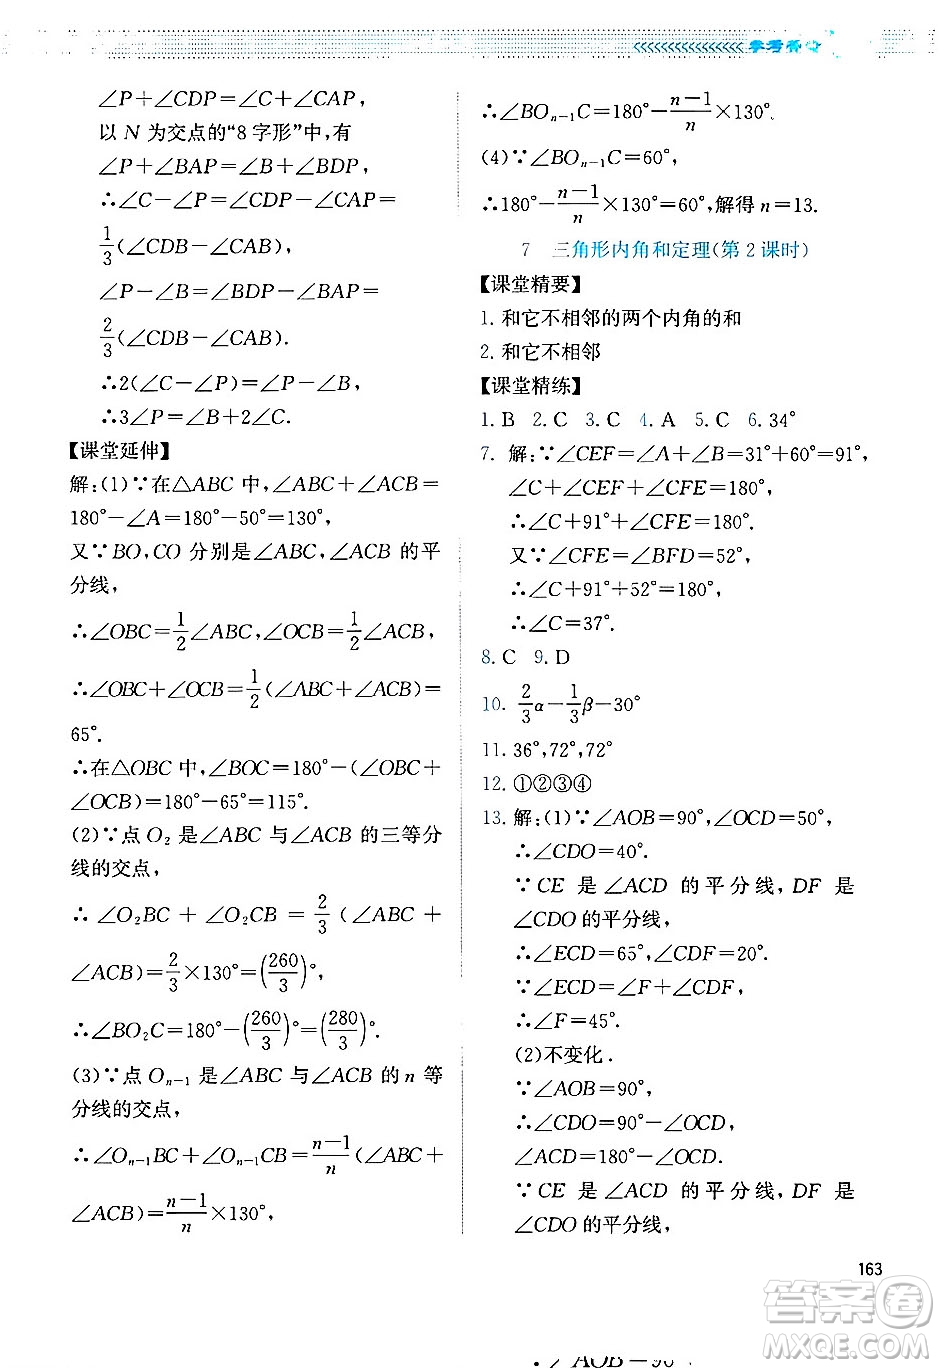 参考答
∠P+∠CDP=∠C+∠CAP,
以 N 为交点的“8 字形”中,有
∠P+∠BAP=∠B+∠BDP,
∴∠C-∠P=∠CDP-∠CAP=
1/3(∠CDB-∠CAB),
∠P-∠B=∠BDP-∠BAP=
2/3(∠CDB-∠CAB).
∴2(∠C-∠P)=∠P-∠B,
∴3∠P=∠B+2∠C.
【课堂延伸】
解:(1)∵在△ABC 中,∠ABC+∠ACB=
180°-∠A=180°-50°=130°,
又∵BO,CO 分别是∠ABC,∠ACB 的平
分线,
∴∠OBC=1/2∠ABC,∠OCB=1/2∠ACB,
∴∠OBC+∠OCB=1/2(∠ABC+∠ACB)=
65°.
∴在△OBC 中,∠BOC=180°-(∠OBC+
∠OCB)=180°-65°=115°.
(2)∵点 O₂ 是∠ABC 与∠ACB 的三等分
线的交点,
∴∠O₂BC+∠O₂CB=2/3(∠ABC+
∠ACB)=2/3×130°=(260/3)°,
∴∠BO₂C=180°-(260/3)°=(280/3)°.
(3)∵点 Oₙ₋₁ 是∠ABC 与∠ACB 的 n 等
分线的交点,
∴∠Oₙ₋₁BC+∠Oₙ₋₁CB=(n-1)/n(∠ABC+
∠ACB)=(n-1)/n×130°,
∴∠BOₙ₋₁C=180°-(n-1)/n×130°.
(4)∵∠BOₙ₋₁C=60°,
∴180°-(n-1)/n×130°=60°,解得 n=13.
7 三角形内角和定理(第 2 课时)
【课堂精要】
1. 和它不相邻的两个内角的和
2. 和它不相邻
【课堂精练】
1. B 2. C 3. C 4. A 5. C 6. 34°
7. 解:∵∠CEF=∠A+∠B=31°+60°=91°,
∠C+∠CEF+∠CFE=180°,
∴∠C+91°+∠CFE=180°.
又∵∠CFE=∠BFD=52°,
∴∠C+91°+52°=180°,
∴∠C=37°.
8. C 9. D
10. 2/3α-1/3β-30°
11. 36°,72°,72°
12. ①②③④
13. 解:(1)∵∠AOB=90°,∠OCD=50°,
∴∠CDO=40°.
∵CE 是∠ACD 的平分线,DF 是
∠CDO的平分线,
∴∠ECD=65°,∠CDF=20°.
∵∠ECD=∠F+∠CDF,
∴∠F=45°.
(2)不变化.
∵∠AOB=90°,
∴∠CDO=90°-∠OCD,
∠ACD=180°-∠OCD.
∵CE 是∠ACD 的平分线,DF 是
∠CDO 的平分线,
163
答案圈
MXQE.COM
∠AOB=90